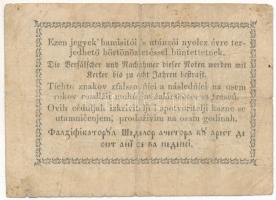 Ezen jegyek' hamisítói 's utánzói nyolcz évre ter-
jedhető börtönözéssel büntettetnek.
Die Verfälscher und Nachahmer dieser Noten werden mit
Kerker bis zu acht Jahren bestraft.
Tichto znakov a následníci na osem
rokov
Ovih ceduljah izkrivitelji i spotvoritelji kazne se
utamničenjem, produživim na osam godinah.
Фалзіфікаторул Шеделор ачестора ку арест де
опт ані се ва педепсі.